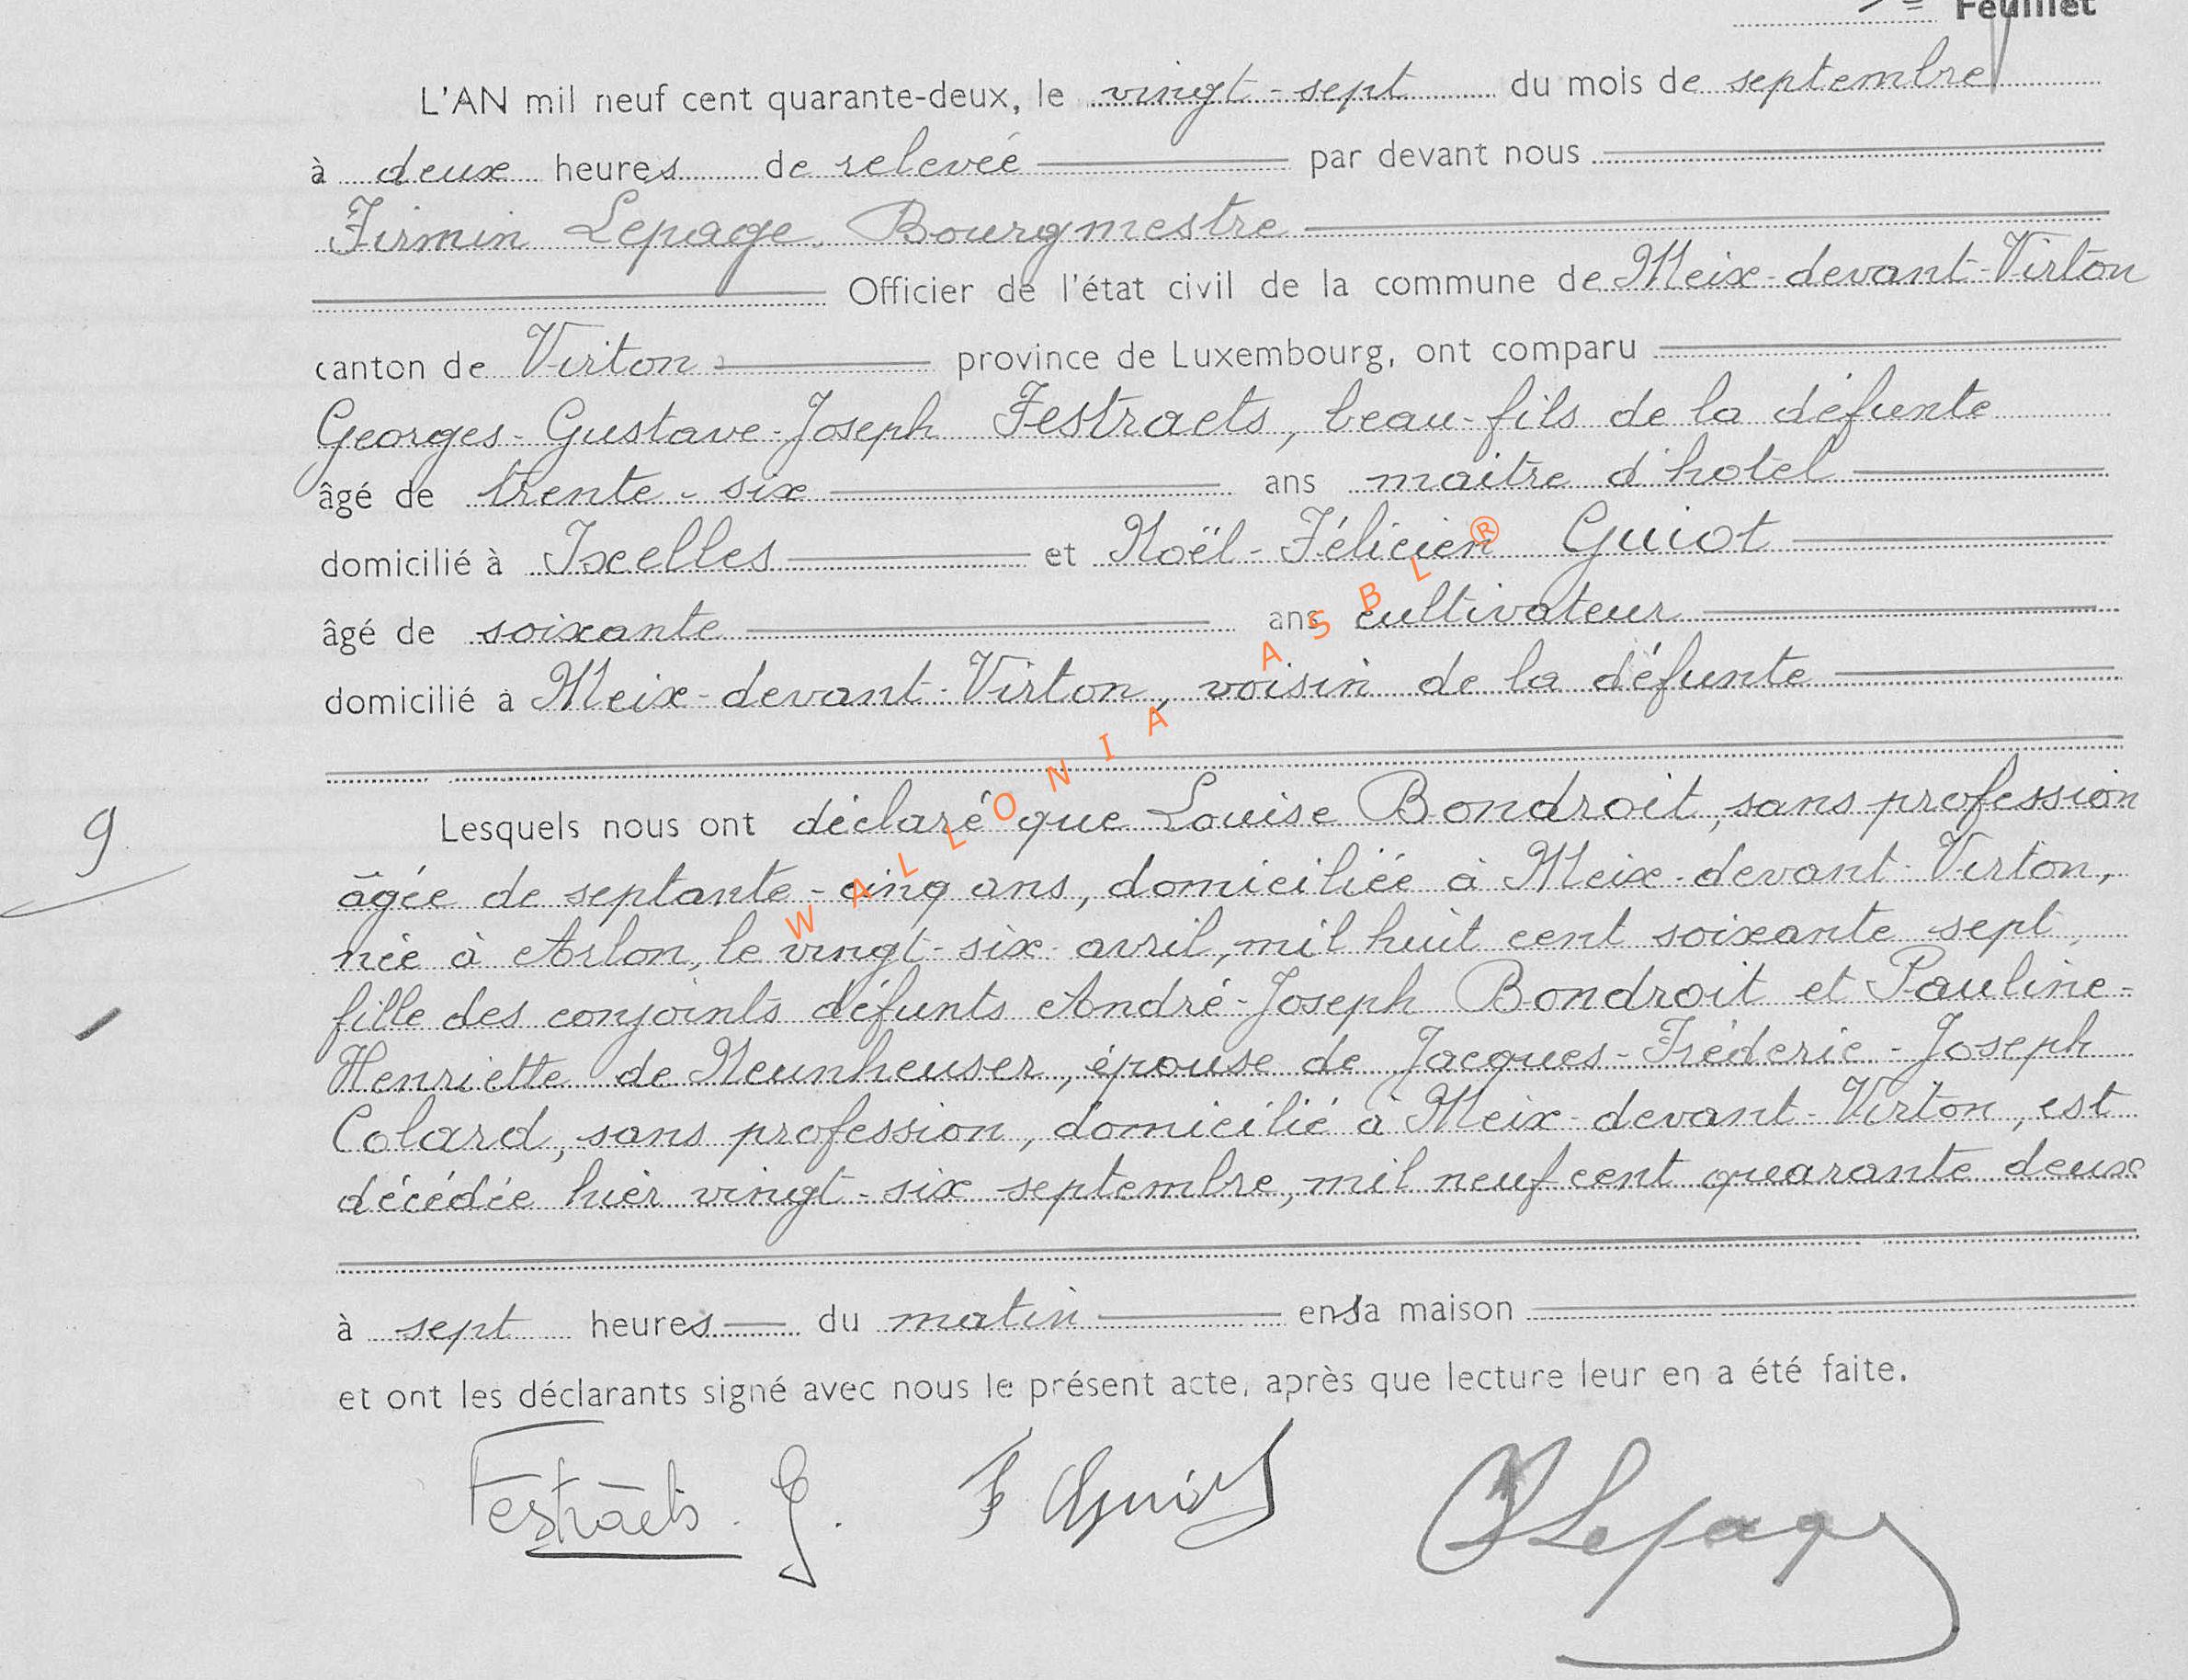 Feuillet
L'AN mil neuf cent quarante-deux, le vingt-sept du mois de septembre
à deux heures de relevée par devant nous
Firmin Lepage, Bourgmestre
Officier de l'état civil de la commune de Meix-devant-Virton
canton de Virton province de Luxembourg, ont comparu
Georges-Gustave-Joseph Festraets, beau-fils de la défunte
âgé de trente-six ans maitre d'hotel
domicilié à Ixelles et Noël-Félicien Guiot
âgé de soixante ans cultivateur
domicilié à Meix-devant-Virton, voisin de la défunte
Lesquels nous ont déclaré que Louise Bondroit, sans profession
9
âgée de septante-cinq ans, domiciliée à Meix-devant-Virton,
née à Arlon, le vingt-six avril, mil huit cent soixante sept,
fille des conjoints défunts André-Joseph Bondroit et Pauline-
Henriette de Neunheuser, épouse de Jacques-Fréderic-Joseph
Colard, sans profession, domicilié à Meix-devant-Virton, est
décédée hier vingt-six septembre, mil neuf cent quarante deux
à sept heures du matin en sa maison
et ont les déclarants signé avec nous le présent acte, après que lecture leur en a été faite.
Festraets. G. F Guiot Lepage
WALLONIA ASBL®